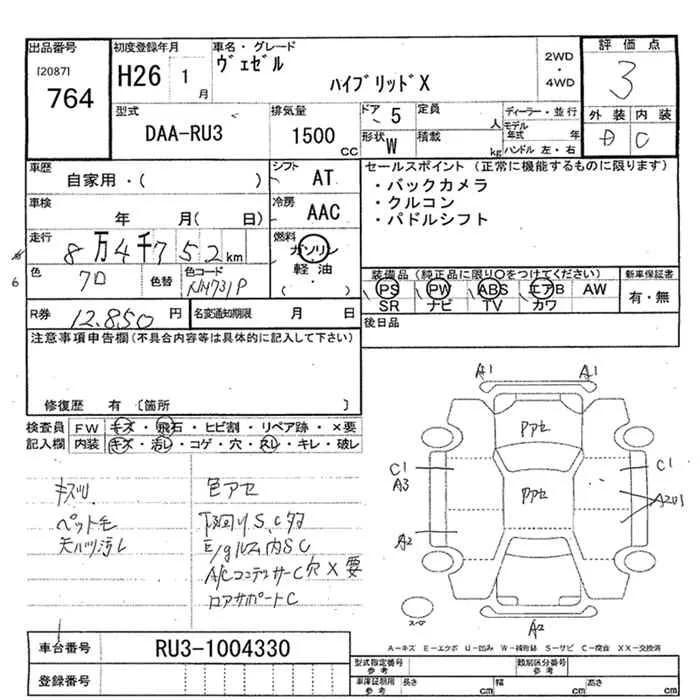 出品番号
[2087]
764
初度登録年月
H26 1月
車名・グレード
ヴェゼル
ハイブリッドX
2WD
・
4WD
評価点
3
外装 内装
C
型式
DAA-RU3
排気量
1500 CC
ドア 5
定員 人
形状 W
積載 kg
ディーラー・並行
モデル年式 年
ハンドル 左・右
車歴
自家用・( )
シフト AT
車検
年 月( 日)
冷房 AAC
走行
8万4千752km
燃料
ガソリン
軽油
( ・ )
色 クロ
色替
色コード NH731P
R券 12,850円
名変通知期限 月 日
セールスポイント (正常に機能するものに限ります)
・バックカメラ
・クルコン
・パドルシフト
装備品 (純正品に限り○をつけてください)
PS PW ABS エアB AW
SR ナビ TV カワ
新車保証書
有・無
後日品
注意事項申告欄(不具合内容等は具体的に記入して下さい)
修復歴 有 〔箇所 〕
検査員記入欄
FW キズ・飛石・ヒビ割・リペア跡・×要
内装 キズ・汚レ・コゲ・穴・スレ・キレ・破レ
キズ
ペット毛
天バリ汚レ
色アセ
下回りS、C多
E/gルム内SC
A/CコンデンサーC穴×要
ロアサポートC
A1 A1
アセ
アセ
C1
A3
C1
A2
A2
スペア
A-キズ E-エクボ U-凹み W-補修跡 S-サビ C-腐食 XX-交換済
車台番号
RU3-1004330
登録番号
型式指定番号 参考
類別区分番号 参考
車庫証明用 参考
長さ cm
幅 cm
高さ cm